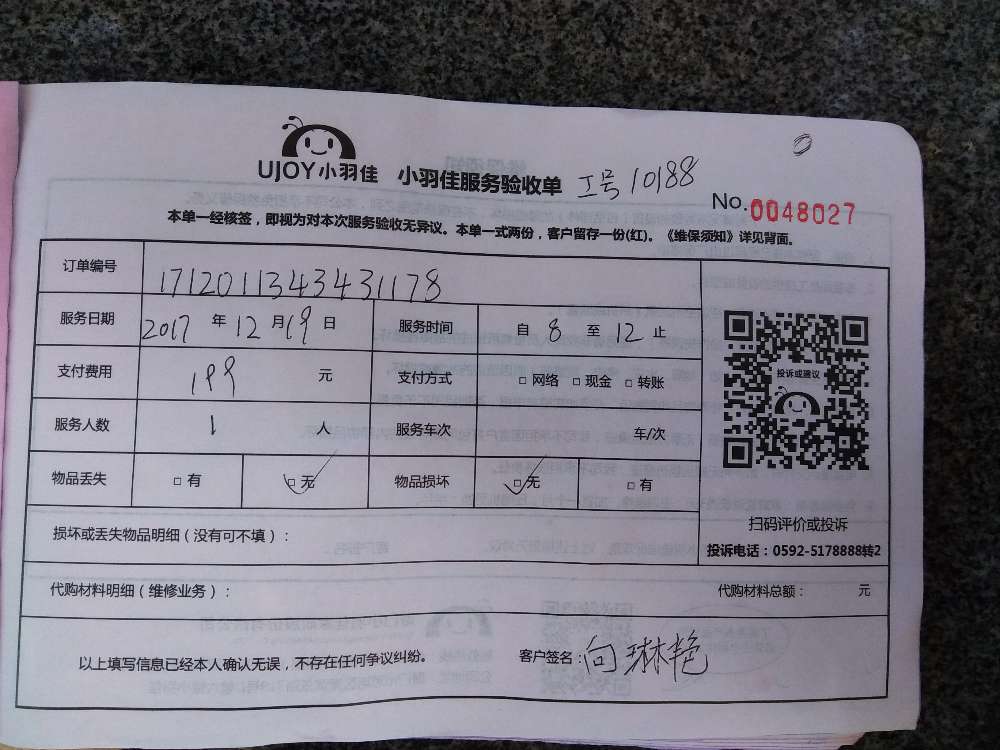 UJOY小羽佳 小羽佳服务验收单 工号10188
No.0048027
本单一经核签，即视为对本次服务验收无异议。本单一式两份，客户留存一份(红)。《维保须知》详见背面。
订单编号 17120113434431178
服务日期 2017 年 12 月 19 日 服务时间 自 8 至 12 止
支付费用 199 元 支付方式 □网络 □现金 □转账
服务人数 1 人 服务车次 车/次
物品丢失 □有 □无 物品损坏 □无 □有
投诉或建议
扫码评价或投诉
投诉电话：0592-5178888转2
损坏或丢失物品明细（没有可不填）：
代购材料明细（维修业务）： 代购材料总额： 元
以上填写信息已经本人确认无误，不存在任何争议纠纷。 客户签名：向琳艳